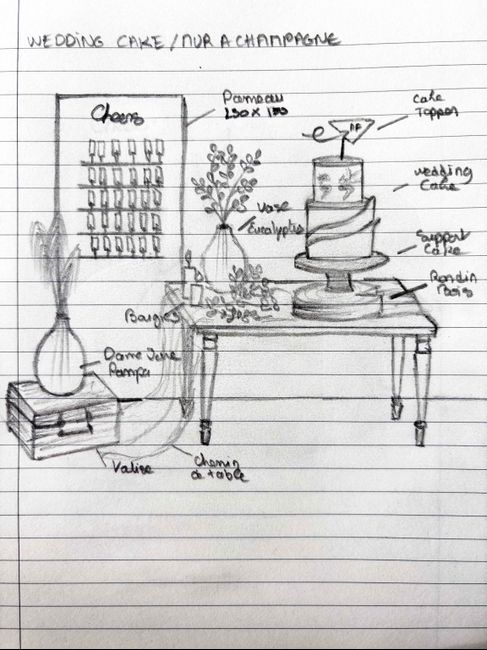 WEDDING CAKE / MUR A CHAMPAGNE
Cheers
Panneau
Cake
Topper
wedding
Cake
Vase
Eucalyptus
Support
Cake
Rondin
Bois
Bougies
Dame Jane
Pampa
Valise
Chemin
de table